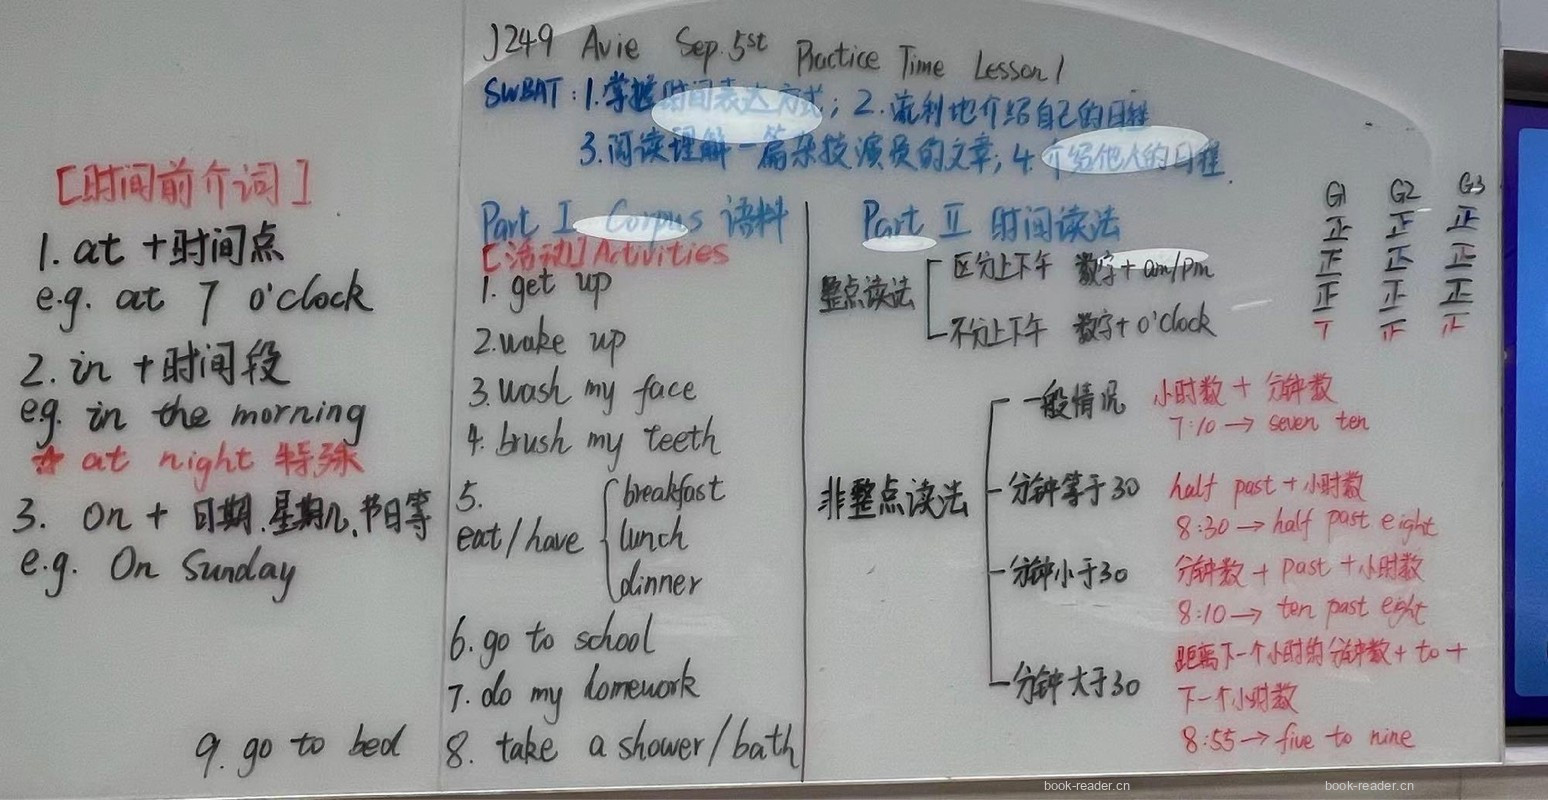 J249 Avie Sep.5st Practice Time Lesson 1
SWBAT: 1.掌握时间表达方式; 2.流利地介绍自己的日程
3.阅读理解一篇杂技演员的文章; 4.介绍他人的日程.
[时间前介词]
1. at +时间点
e.g. at 7 o'clock
2. in +时间段
eg. in the morning
☆ at night 特殊
3. On + 日期.星期几.节日等
e.g. On Sunday
Part I Corpus 语料
[活动] Activities
1. get up
2. wake up
3. wash my face
4. brush my teeth
5.
eat/have { breakfast
lunch
dinner
6. go to school
7. do my domework
8. take a shower/bath
9. go to bed
Part II 时间读法
整点读法
区分上下午 数字+ am/pm
不分上下午 数字+ o'clock
非整点读法
一般情况 小时数 + 分钟数
7:10 → seven ten
分钟等于30 half past +小时数
8:30 → half past eight
分钟小于30 分钟数 + past +小时数
8:10 → ten past eight
分钟大于30 距离下一个小时的分钟数+ to +
下一个小时数
8:55 → five to nine
G1 G2 G3
正 正 正
正 正 正
正 正 正
book-reader.cn book-reader.cn